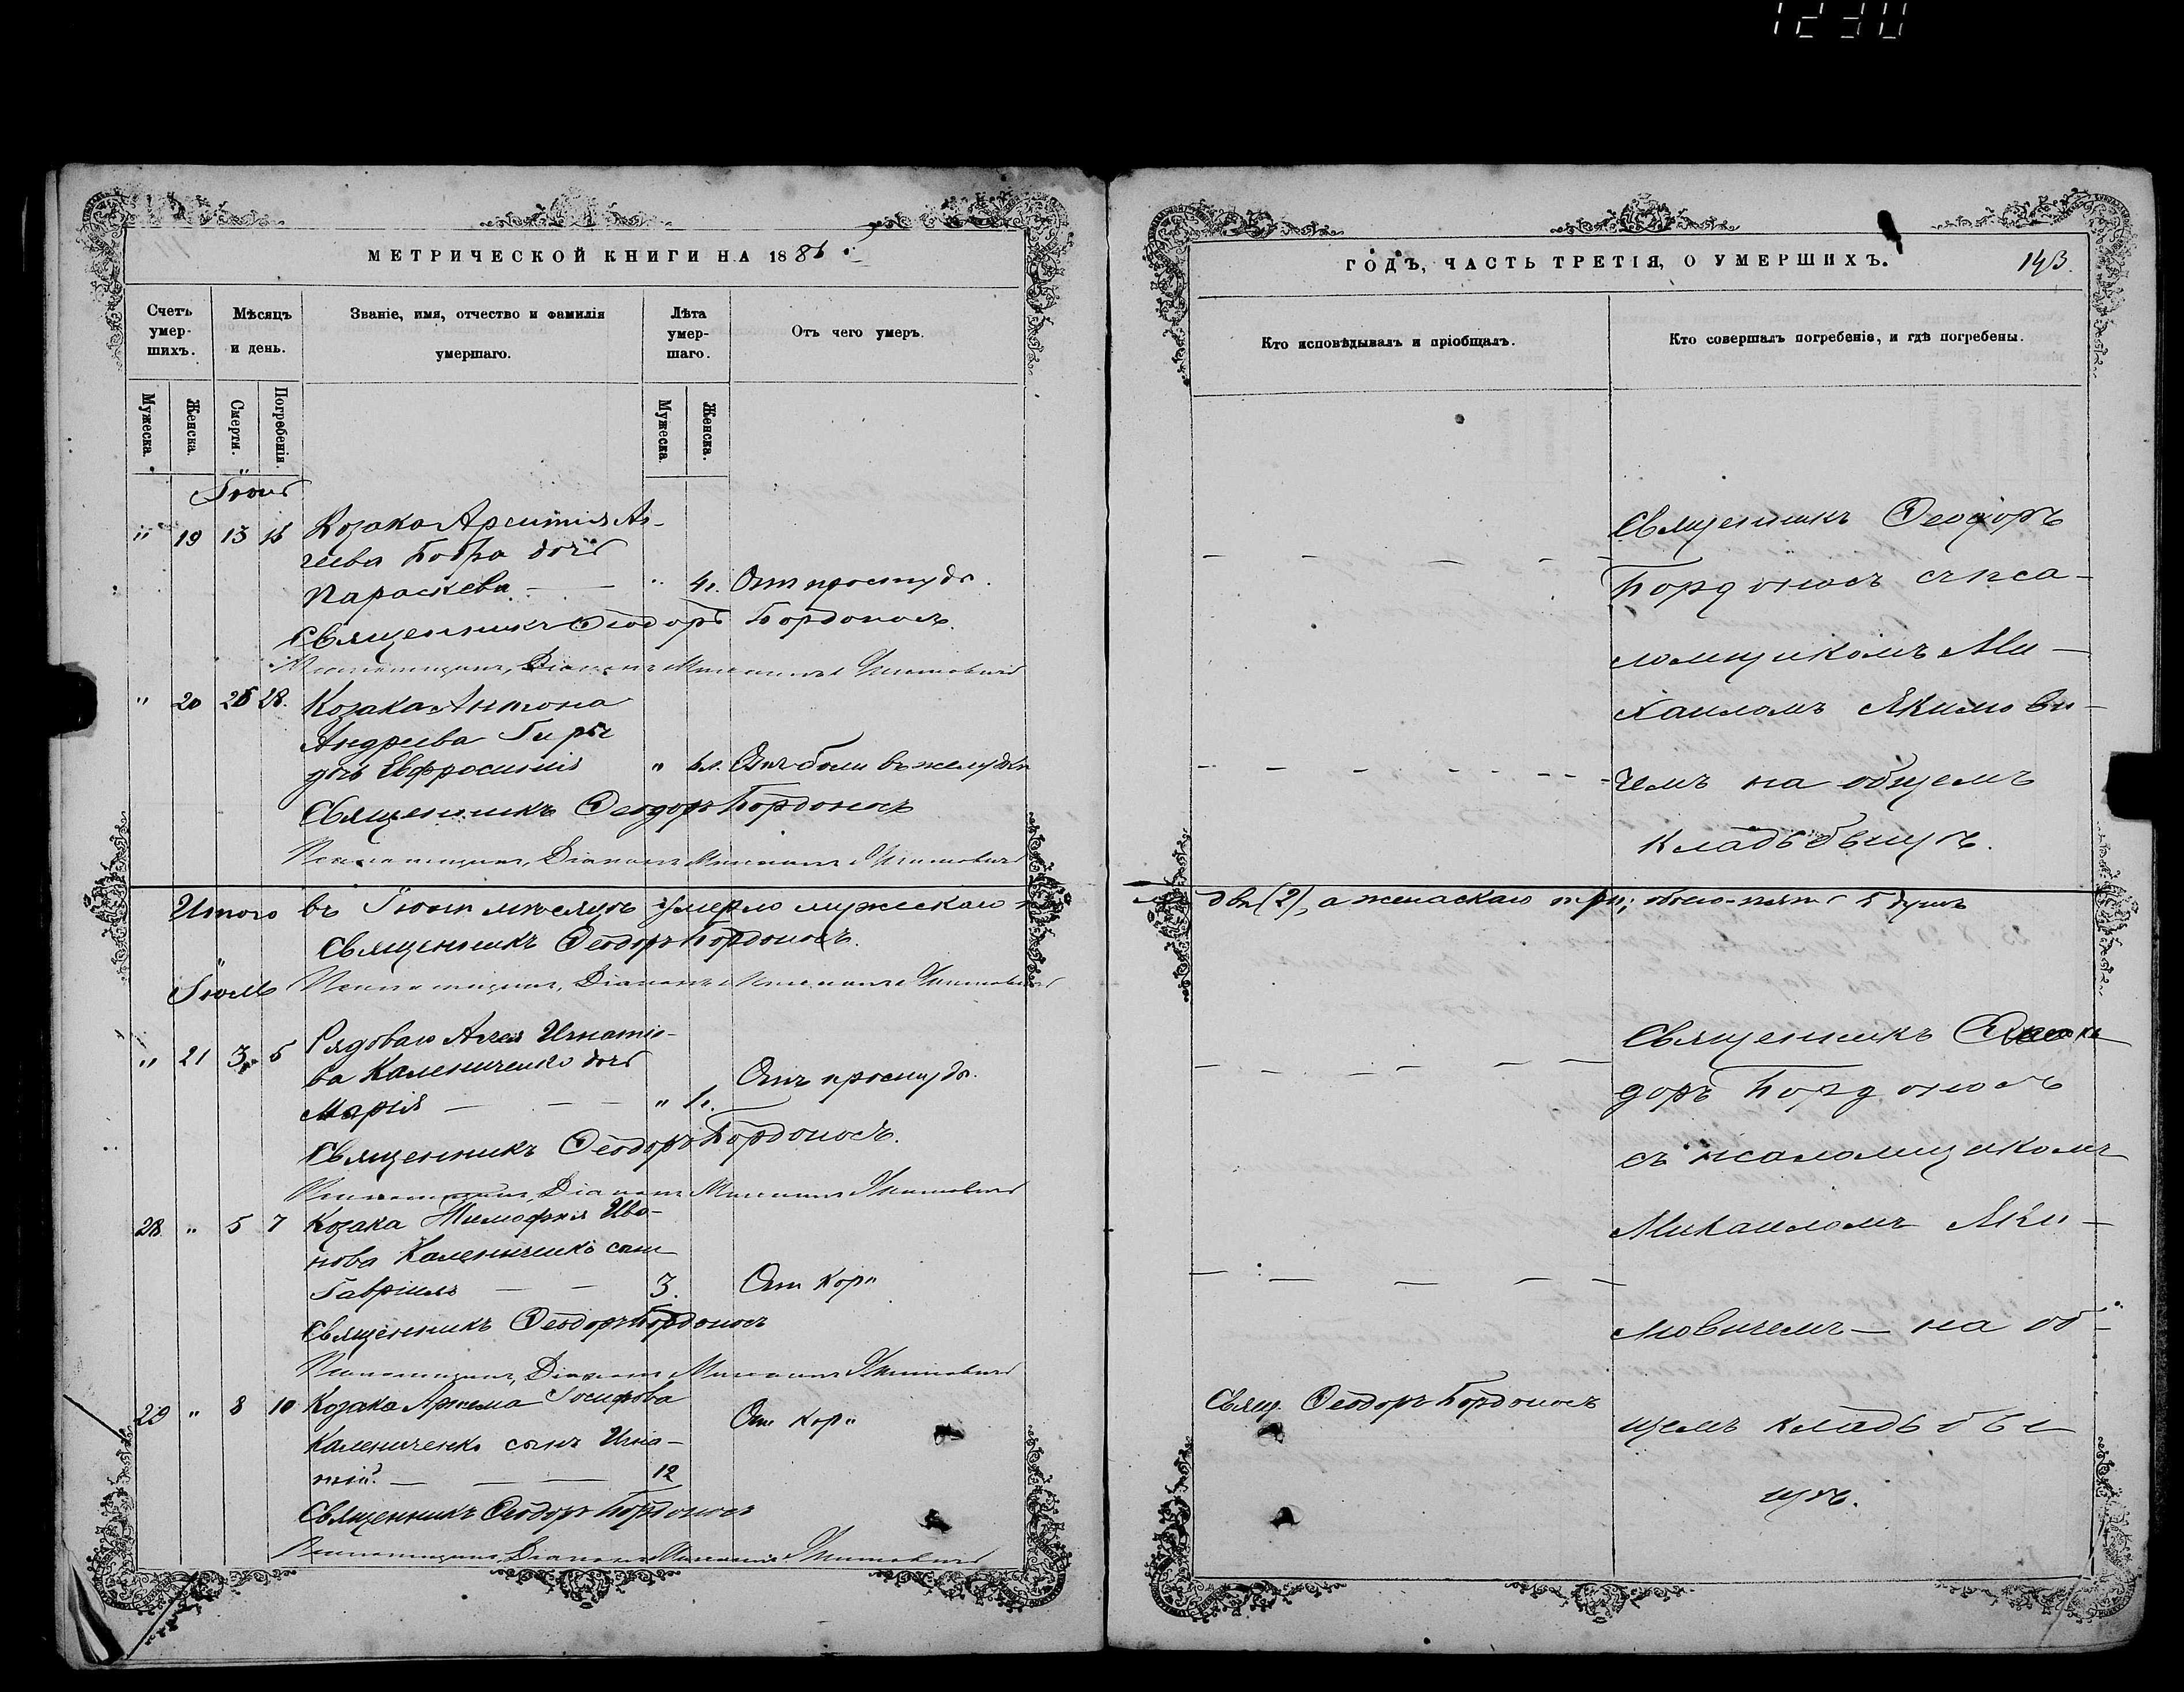 1230
МЕТРИЧЕСКОЙ КНИГИ НА 1886
Счетъ умер-шихъ.
Мѣсяцъ и день.
Званіе, имя, отчество и фамилія умершаго.
Лѣта умер-шаго.
Отъ чего умеръ.
Мужеска.
Женска.
Смерти.
Погребенія.
Мужеска.
Женска.
Іюнь
" 19 13 15 Козака Арсентія
Бобра дочь
Параскева — — " 4. От простуды.
Священникъ Ѳеодоръ Бордоносъ.
Псаломщикъ, Діаконъ Михаилъ Якимовичъ
" 20 26 28. Козака Антона
Андреева Гиры
дочь Евфросинія " Отъ боли въ желудкѣ
Священникъ Ѳеодоръ Бордоносъ
Псаломщикъ, Діаконъ Михаилъ Якимовичъ
Итого въ Іюнѣ мѣсяцѣ умерло мужескаго
Священникъ Ѳеодоръ Бордоносъ.
Іюль Псаломщикъ, Діаконъ Михаилъ Якимовичъ
" 21 3 5 Рядоваго Игнатіе-
ва Калениченко дочь
Марія — — — " 1. Отъ простуды.
Священникъ Ѳеодоръ Бордоносъ.
Псаломщикъ, Діаконъ Михаилъ Якимовичъ
28 " 5 7 Козака Тимофея Ива-
нова Калениченко сынъ
Гавріилъ — — 3. От кори
Священникъ Ѳеодоръ Бордоносъ
Псаломщикъ, Діаконъ Михаилъ Якимовичъ
29 " 8 10 Козака Артема Іосифова
Калениченко сынъ Игна- От кори
тій. — — 12
Священникъ Ѳеодоръ Бордоносъ
Псаломщикъ, Діаконъ Михаилъ Якимовичъ
ГОДЪ, ЧАСТЬ ТРЕТІЯ, О УМЕРШИХЪ.
143.
Кто исповѣдывалъ и пріобщалъ.
Кто совершалъ погребеніе, и гдѣ погребены.
Священникъ Ѳеодоръ
Бордоносъ съ пса-
ломщикомъ Ми-
хаиломъ Якимови-
чемъ на общемъ
кладбищѣ.
два (2), а женскаго три, всего-пять 5 душъ
Священникъ Ѳео-
доръ Бордоносъ
съ псаломщикомъ
Михаиломъ Яки-
мовичемъ — на об-
Свящ. Ѳеодоръ Бордоносъ
щемъ кладби-
щѣ.